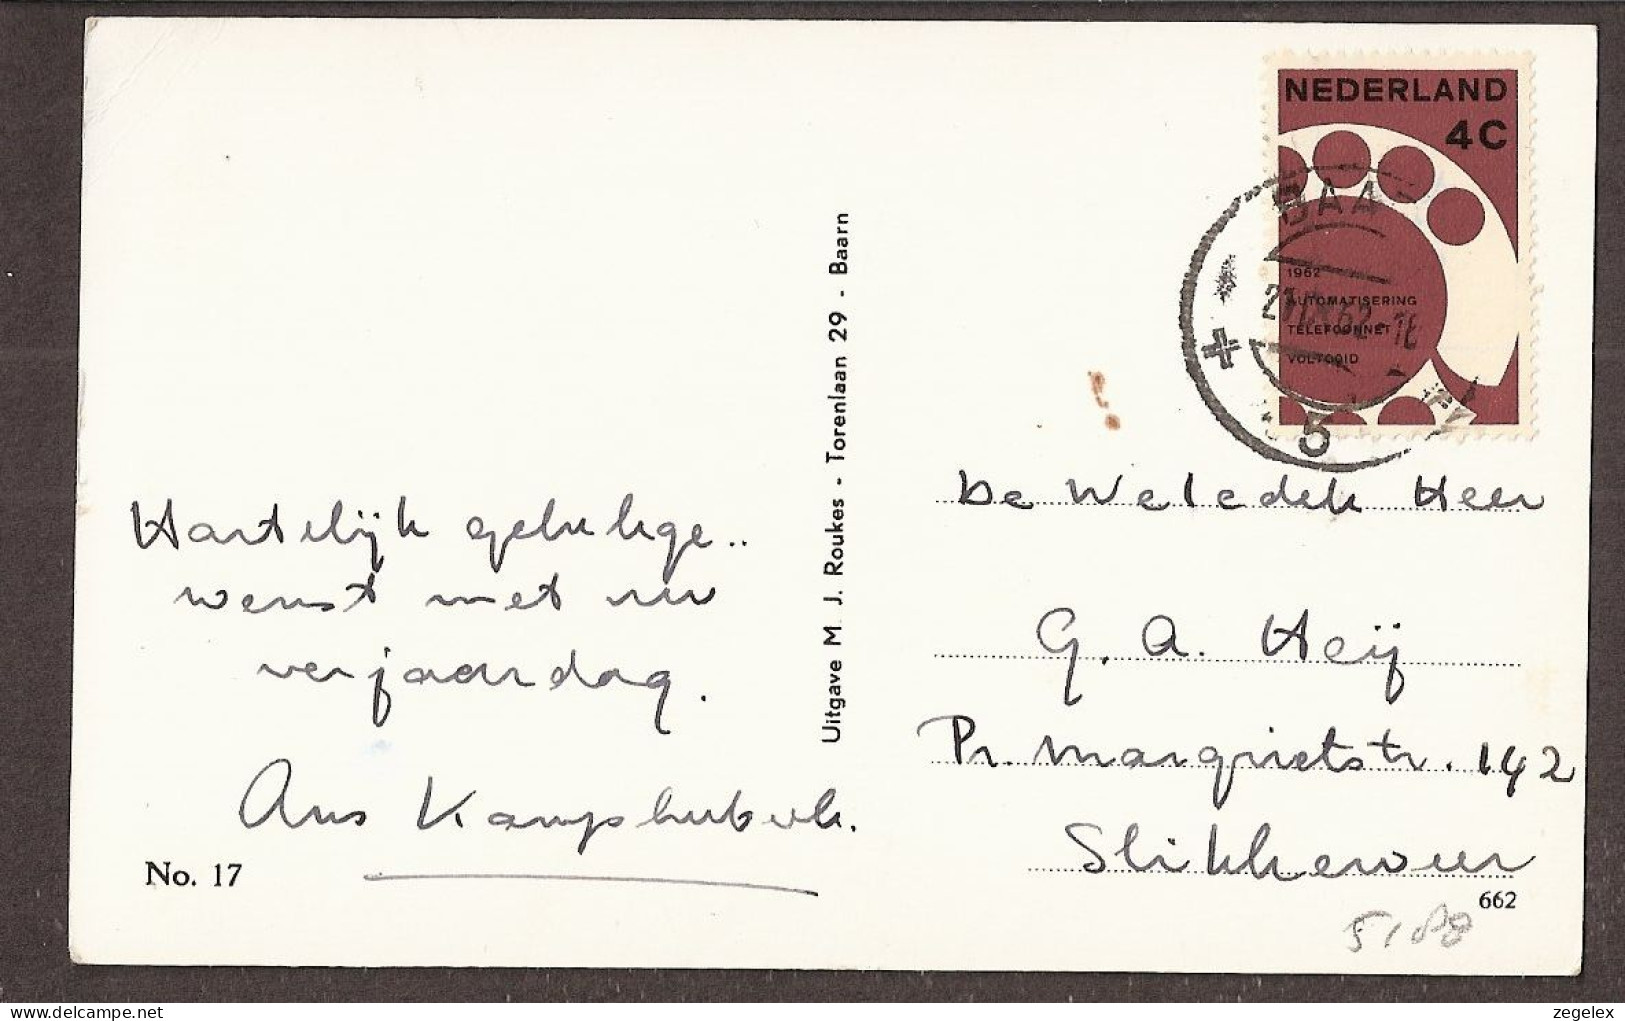 NEDERLAND
4C
1962
AUTOMATISERING
TELEFOONNET
VOLTOOID
BAA
62-16
5
Uitgave M. J. Roukes - Torenlaan 29 - Baarn
Hartelijk geluk ge..
wenst met uw
verjaardag.
Ans
No. 17
De Weledele Heer
G. A. Heij
Pr. Margrietstr. 142
Slikkerveer
662
5/88
delcampe.net
zegelex